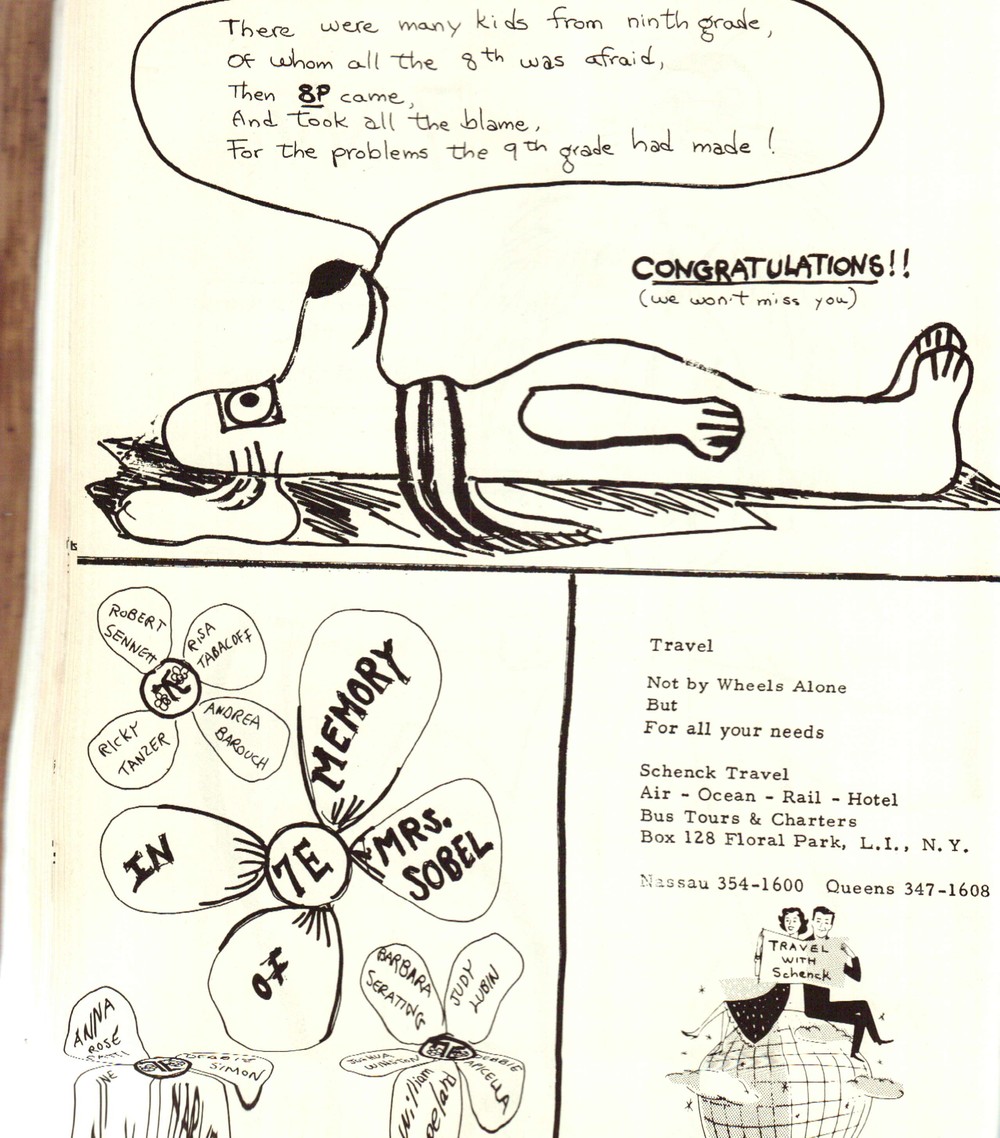 There were many kids from ninth grade,
Of whom all the 8th was afraid,
Then 8P came,
And took all the blame,
For the problems the 9th grade had made!
CONGRATULATIONS!!
(we won't miss you)
ROBERT
SENNETT
RISA
TABACOFF
7E
RICKY
TANZER
ANDREA
BAROUCH
IN
MEMORY
OF
MRS.
SOBEL
7E
BARBARA
SERATING
JUDY
LUBIN
JOSHUA
WINSTON
DEBBIE
William
ANNA
ROSE
PATTI
SIMON
Travel
Not by Wheels Alone
But
For all your needs
Schenck Travel
Air - Ocean - Rail - Hotel
Bus Tours & Charters
Box 128 Floral Park, L.I., N.Y.
Nassau 354-1600 Queens 347-1608
TRAVEL
WITH
Schenck